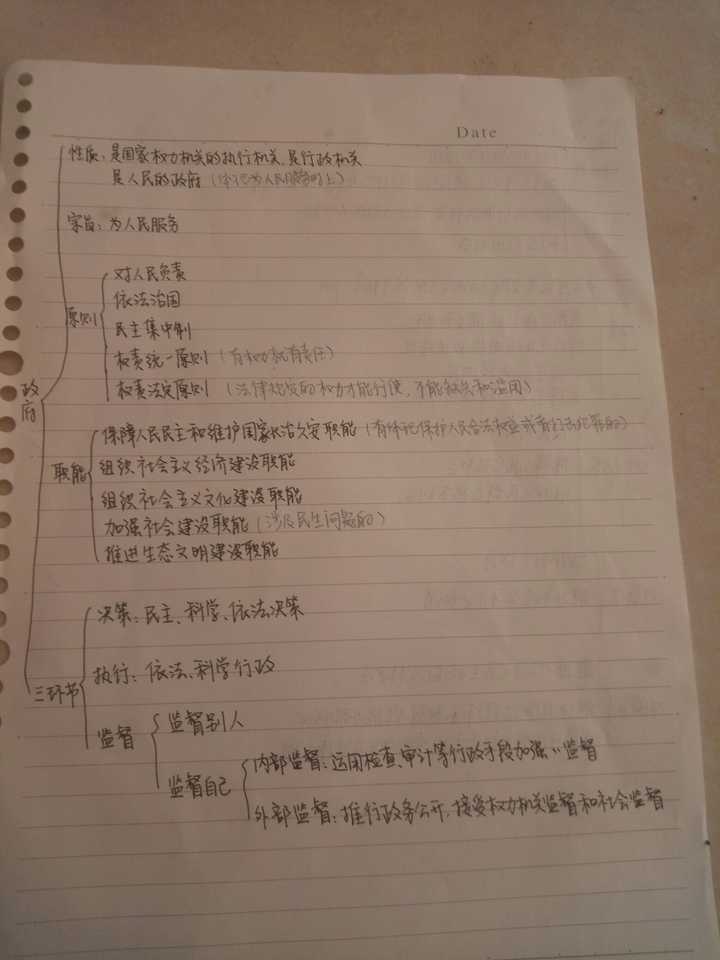 Date
性质：是国家权力机关的执行机关，是行政机关
是人民的政府（体现为人民服务时上）
宗旨：为人民服务
原则
对人民负责
依法治国
民主集中制
权责统一原则（有权力就有责任）
权责法定原则（法律规定的权力才能行使，不能缺失和滥用）
政府
职能
保障人民民主和维护国家长治久安职能（有体现保护人民合法权益或者打击犯罪的）
组织社会主义经济建设职能
组织社会主义文化建设职能
加强社会建设职能（涉及民生问题的）
推进生态文明建设职能
三环节
决策：民主、科学、依法决策
执行：依法、科学行政
监督
监督别人
监督自己
内部监督：运用检查、审计等行政手段加强〃监督
外部监督：推行政务公开，接受权力机关监督和社会监督